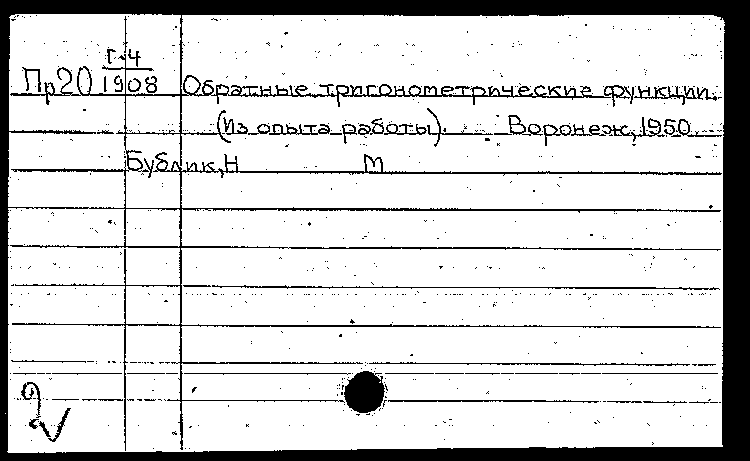 Г-4
Пр20 1908 Обратные тригонометрические функции.
(Из опыта работы). Воронеж, 1950
Бублик, Н М